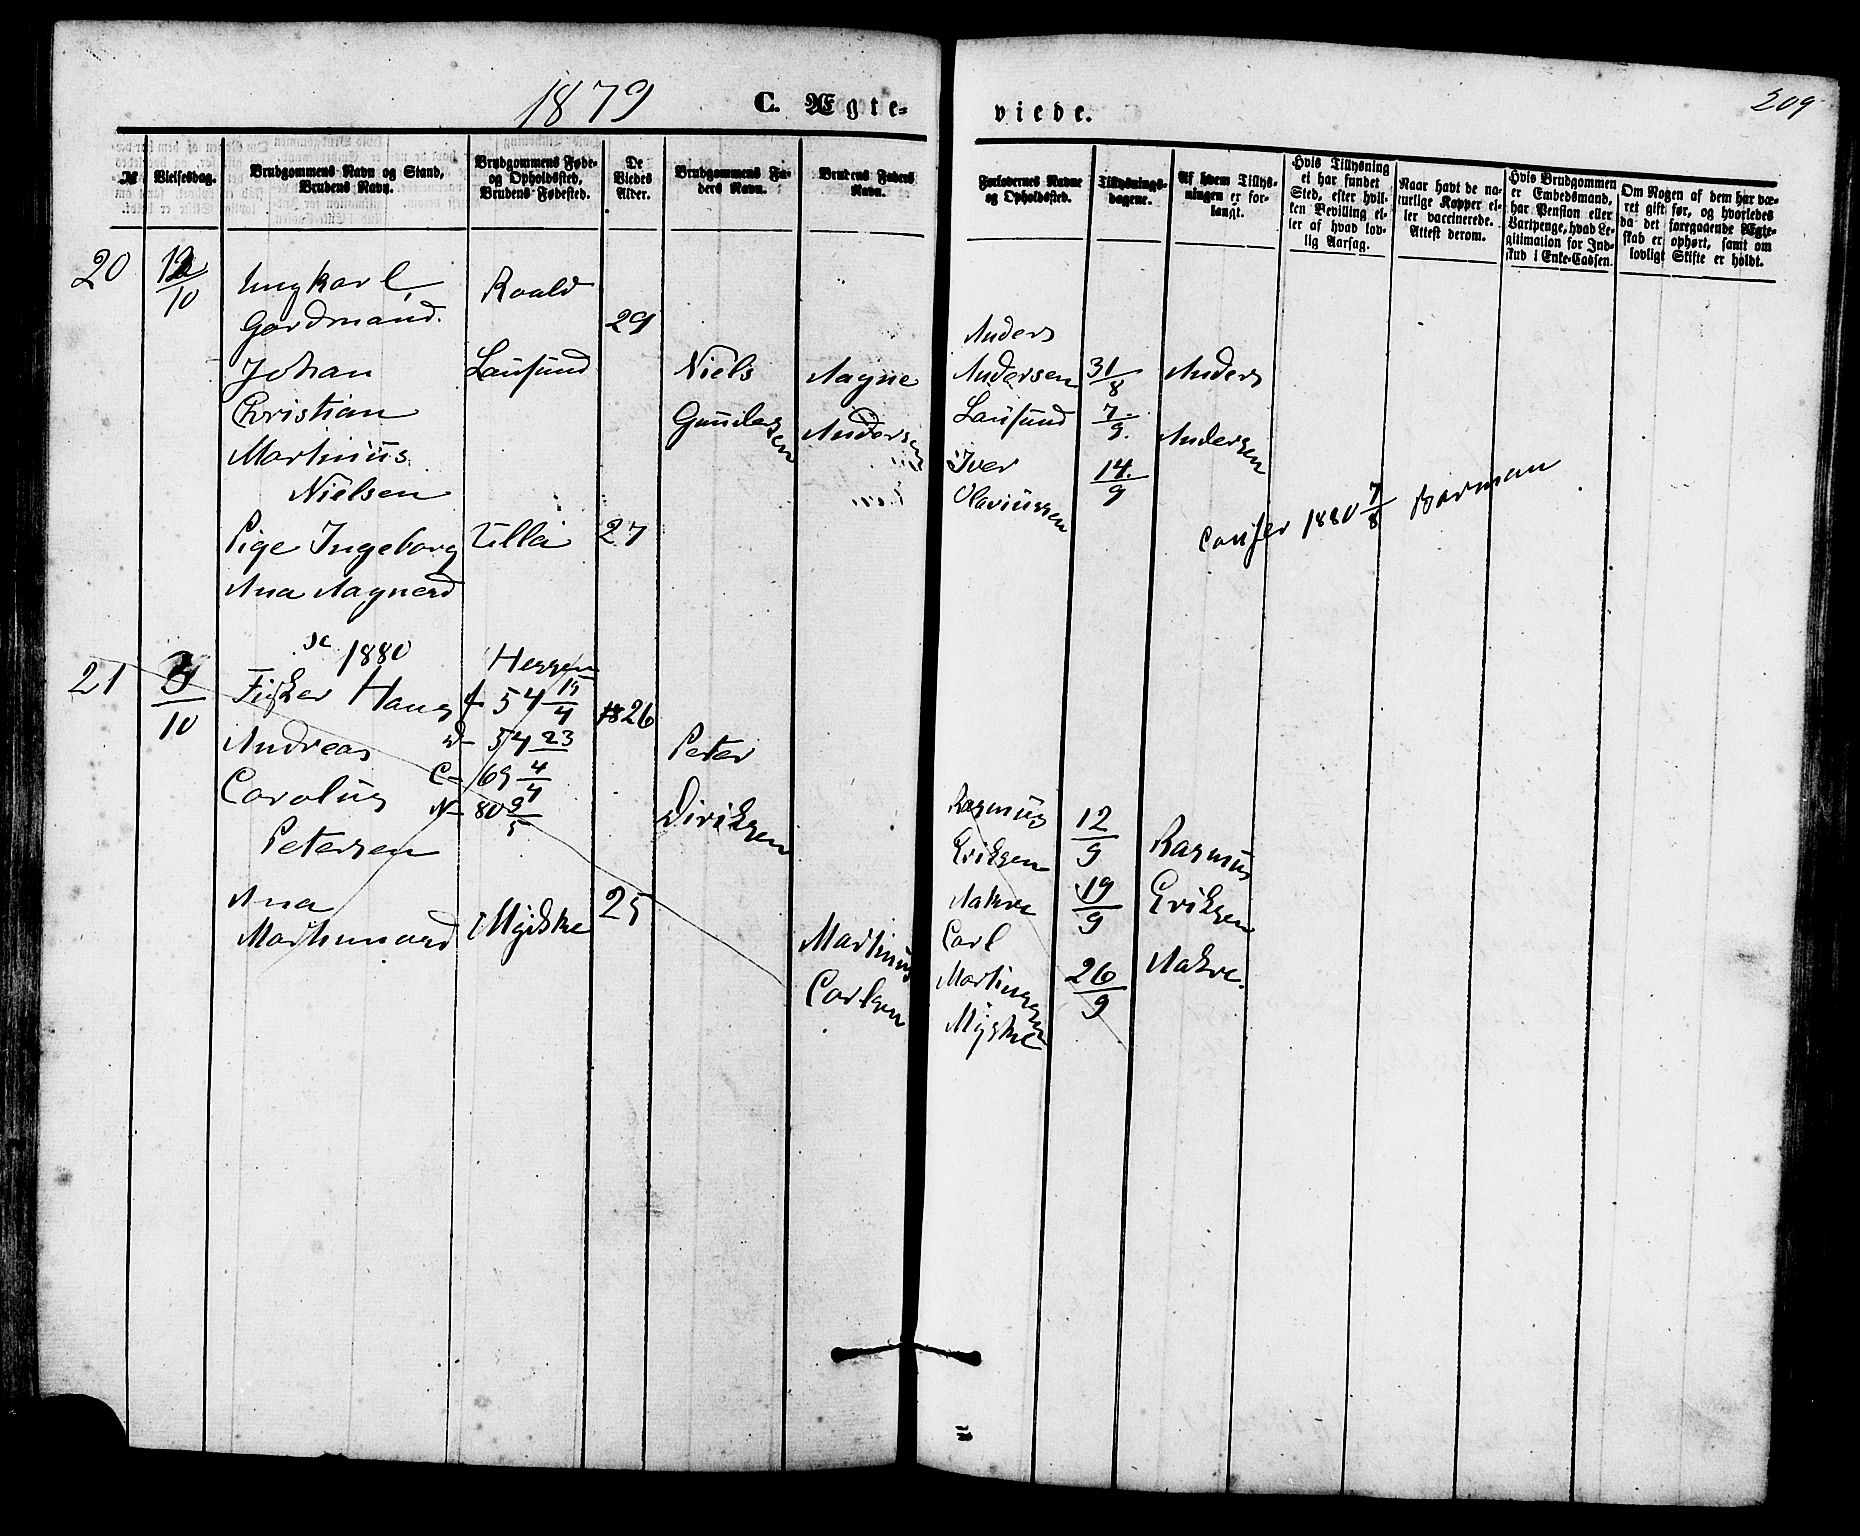 1879
C. Ægte=
viede.
209
№
Vielsesdag.
Brudgommens Navn og Stand,
Brudens Navn.
Brudgommens Føde-
og Opholdssted.
Brudens Fødested.
De
Viedes
Alder.
Brudgommens Fa-
ders Navn.
Brudens Faders
Navn.
Forlovernes Navne
og Opholdssted.
Tillysnings-
dagene.
Af hvem Tillys-
ningen er for-
langt.
Hvis Tillysning
ei har fundet
Sted, efter hvil-
ken Bevilling el-
ler af hvad lov-
lig Aarsag.
Naar havt de na-
turlige Kopper el-
ler vaccinerede.
Attest derom.
Hvis Brudgommen
er Embedsmand,
har Pension eller
Vartpenge, hvad Le-
gitimation for Ind-
skud i Enke-Cassen.
Om Nogen af dem har væ-
ret gift før, og hvorledes
da det foregaaende Ægte-
skab er ophørt, samt om
lovligt Skifte er holdt.
20
12/10
Ungkarl,
Gardmand.
Johan
Christian
Martinus
Nielsen
Roald
Lausund
29
Niels
Gunder
sen
Aagne
Anders
en
Anders
Andersen
Lausund
Iver
Olariussen
31/8
7/9.
14./9
Anders
Andersen
Pige Ingeborg
Ana Aagnerd
Ulla
27
confer 1880 7/8 Borman
21
/10
sc 1880
Fisker Hans
Andreas
Carolus
Petersen
Hessen
f 54 15/4
d- 54 23
C- 69 4/4
N- 80 9/5
26
Peter
Diriksen
Rasmus
Eriksen
Aakre
Carl
Martinssen
Myskre
12/9
19/9
26/9
Rasmus
Eriksen
Aakre.
Ana
Martinnord
25
Martinus
Carlsen